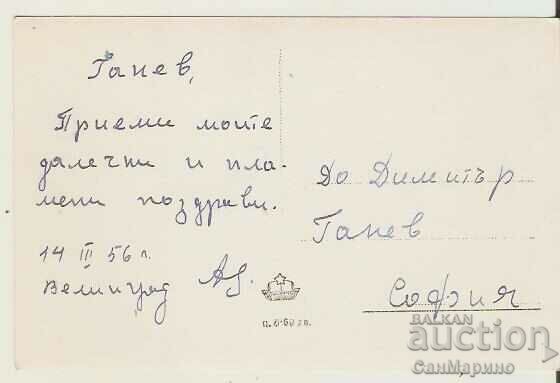 Ганев,
Приеми моите
далечни и пла-
мени поздрави.
14 III 56 г.
Велинград
До Димитър
Ганев
София
ц. 0·60 лв.
BALKAN
auction
СанМарино